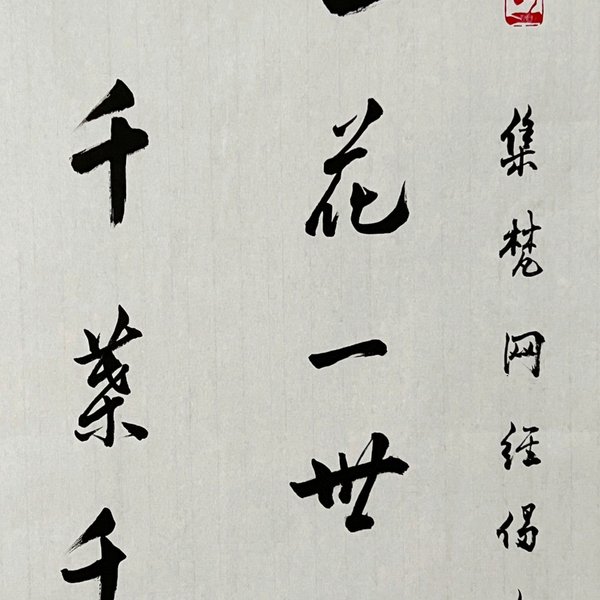 集梵网经偈
一花一世
千葉千